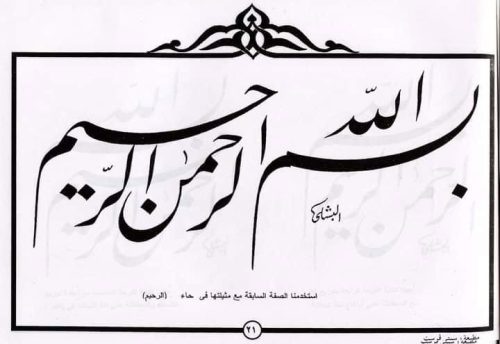 بسم الله الرحمن الرحيم
استخدمنا الصفة السابقة مع مثيلتها فى حاء (الرحيم)
٢١